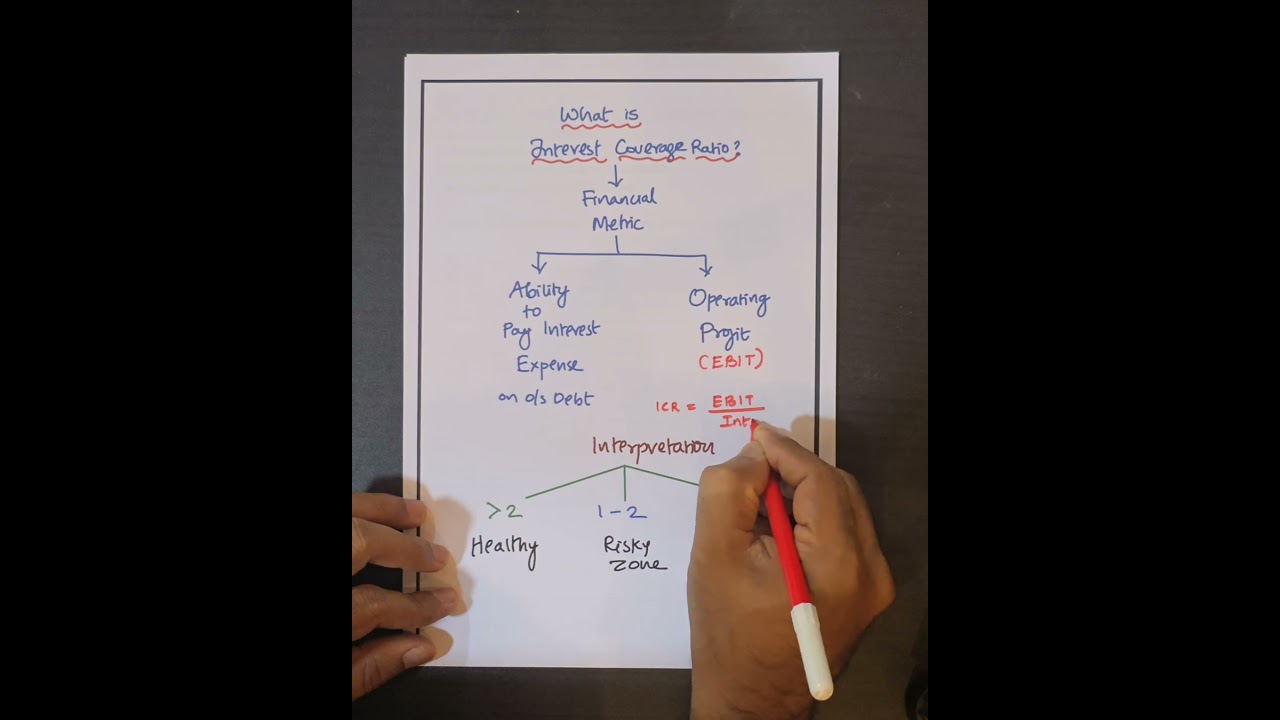 What is
Interest Coverage Ratio?
Financial
Metric
Ability
to
Pay Interest
Expense
on o/s Debt
Operating
Profit
(EBIT)
ICR = EBIT
Int
Interpretation
>2
Healthy
1-2
Risky
Zone